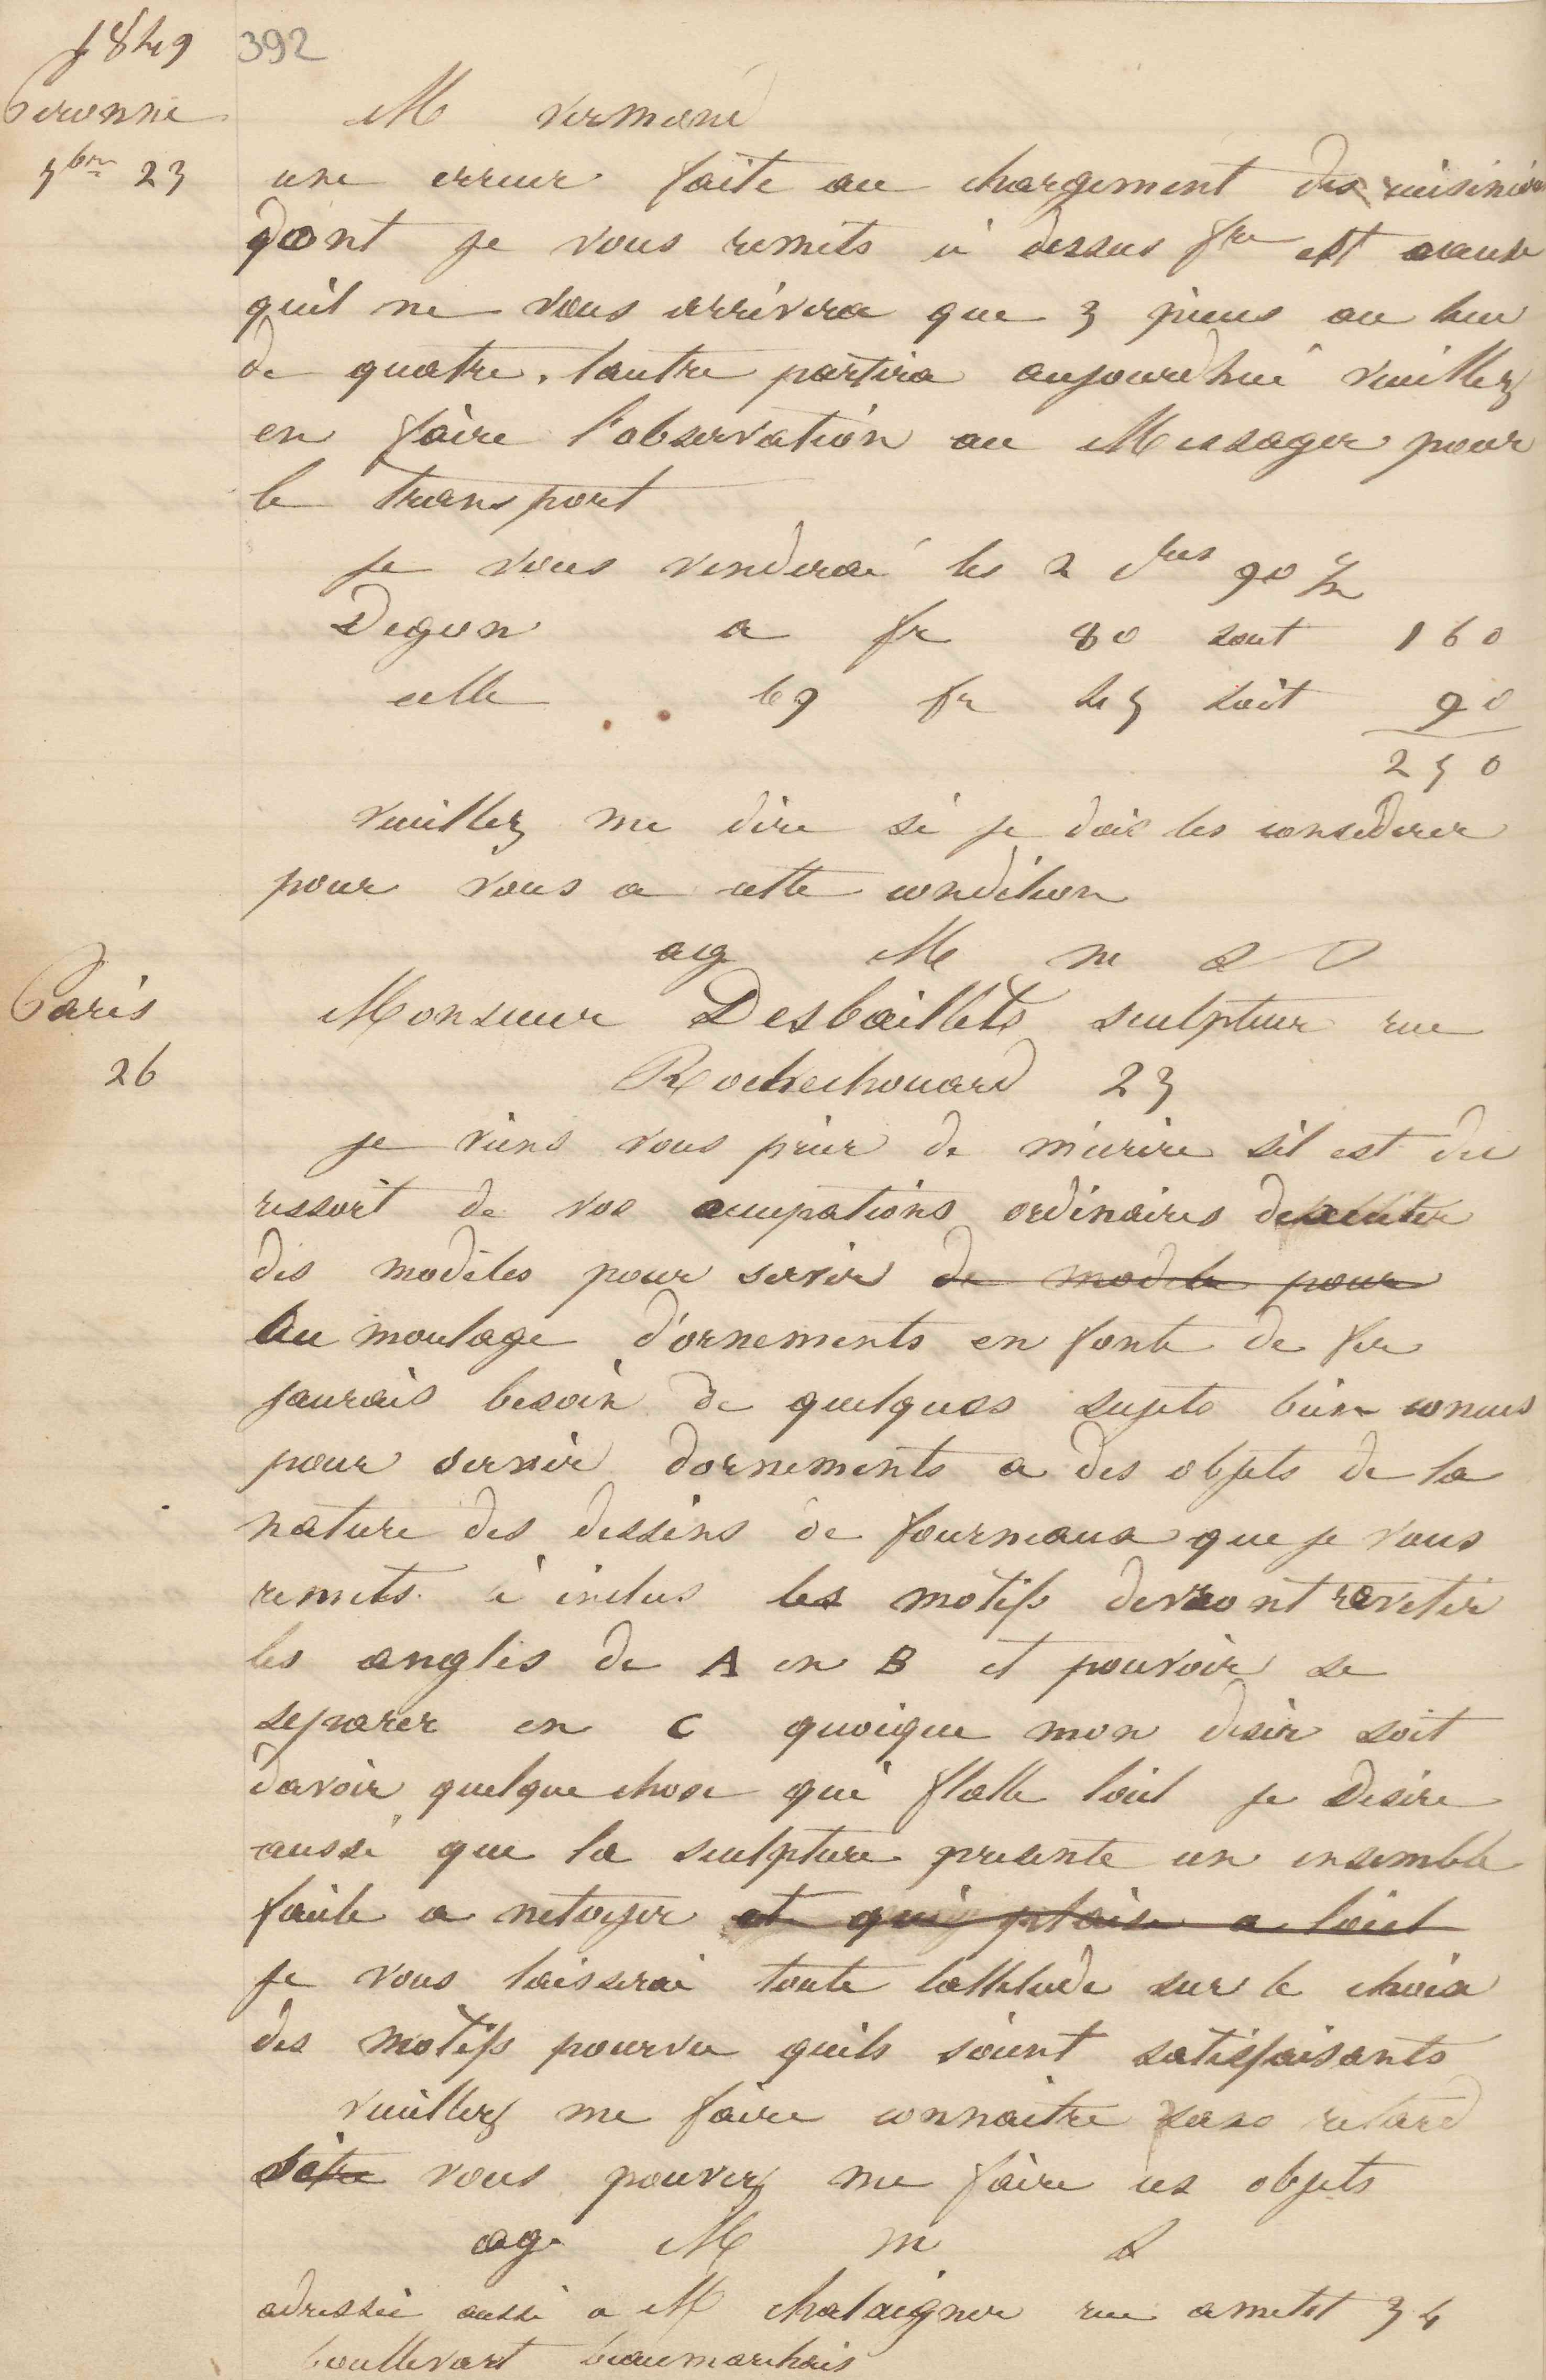 1849 392
Peronne M vermand
9bre 23 une erreur faite au chargement des cuisinieres
dont je vous remets ci dessus fre est cause
quil ne vous arrivera que 3 pieces au lieu
de quatre, lautre partira aujourdhui veuillez
en faire l'observation au Messager pour
le transport
je vous venderai les 2 dres 90 %
Degon a fr 80 sout 160
celle 69 fr 45 soit 90
250
veuillez me dire si je dois les considerer
pour vous a cette condition
ag M m s D
Paris Monsieur Desbaillets sculpteur rue
26 Rochechouard 23
je viens vous prier de m'ecrire sil est du
ressort de vos occupations ordinaires dexecuter
des modeles pour servir de modele pour
au moulage d'ornements en fonte de fer
jaurais besoin de quelques sujets bien connus
pour servir dornements a des objets de la
nature des dessins de fourneaux que je vous
remets ci inclus les motifs devront revetir
les angles de A en B et pouvoir se
separer en C quoique mon desir soit
davoir quelque chose qui flatte loeil je desire
aussi que la sculpture presente un ensemble
facile a netoyer et qui plaise a loeil
je vous laisserai toute lattitude sur le choix
des motifs pourvu quils soient satisfaisants
veuillez me faire connaitre sans retard
si vous pouvez me faire ces objets
ag M m s
adressée aussi a M chataigner rue amelot 34
boullevart beaumarchais